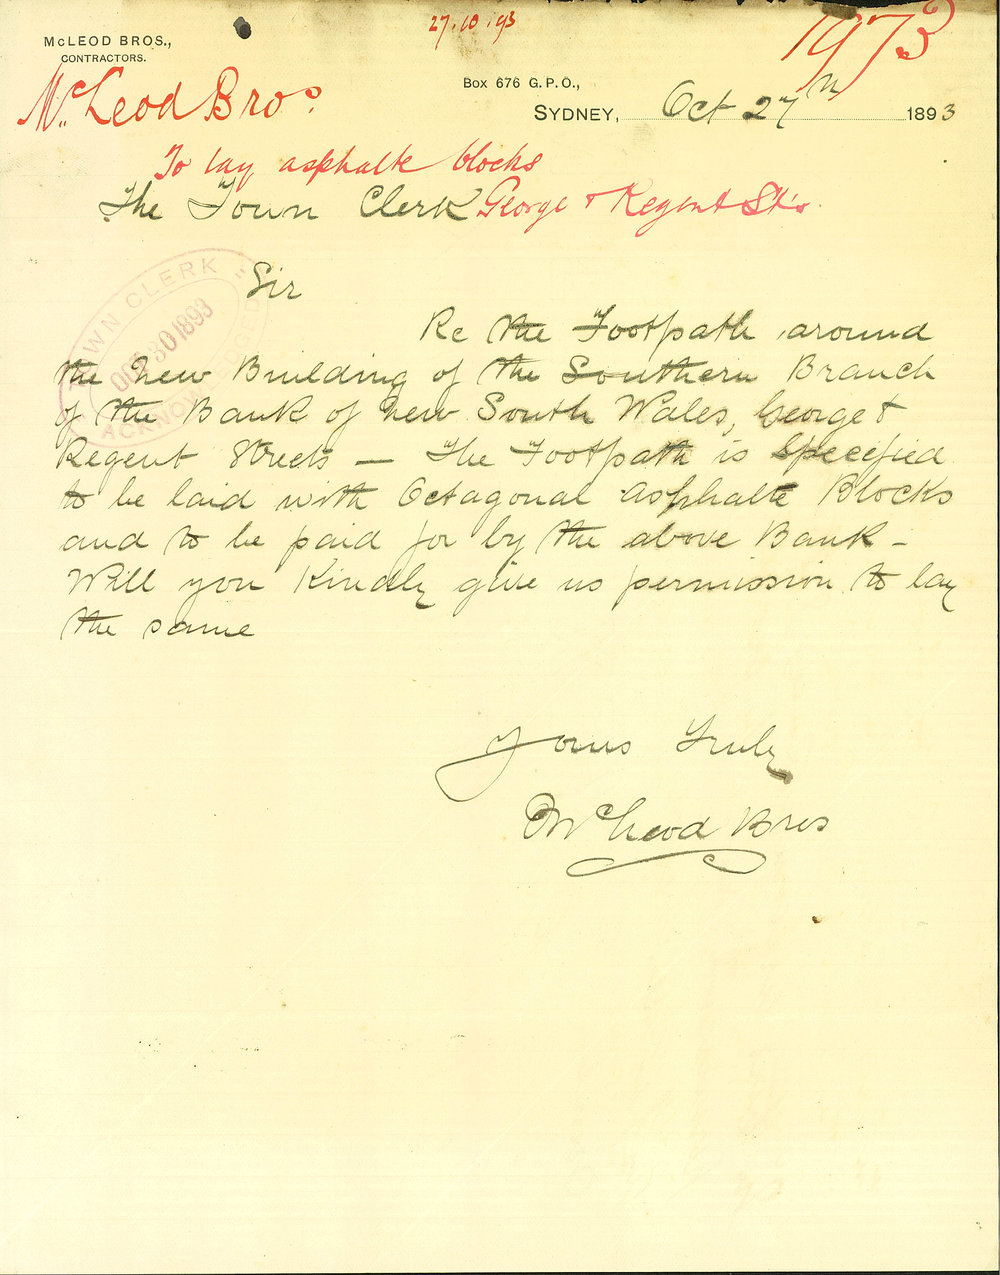 27.10.93
1973
McLEOD BROS.,
CONTRACTORS.
McLeod Bros.
Box 676 G.P.O.,
SYDNEY, Oct 27th 1893
To lay asphalte blocks
George & Regent St's.
The Town Clerk
TOWN CLERK
OCT 30 1893
ACKNOWLEDGED
Sir
Re the Footpath around
the New Building of the Southern Branch
of the Bank of New South Wales, George &
Regent Streets — The Footpath is specified
to be laid with Octagonal Asphalte Blocks
and to be paid for by the above Bank –
Will you Kindly give us permission to lay
the same
Yours Truly
McLeod Bros